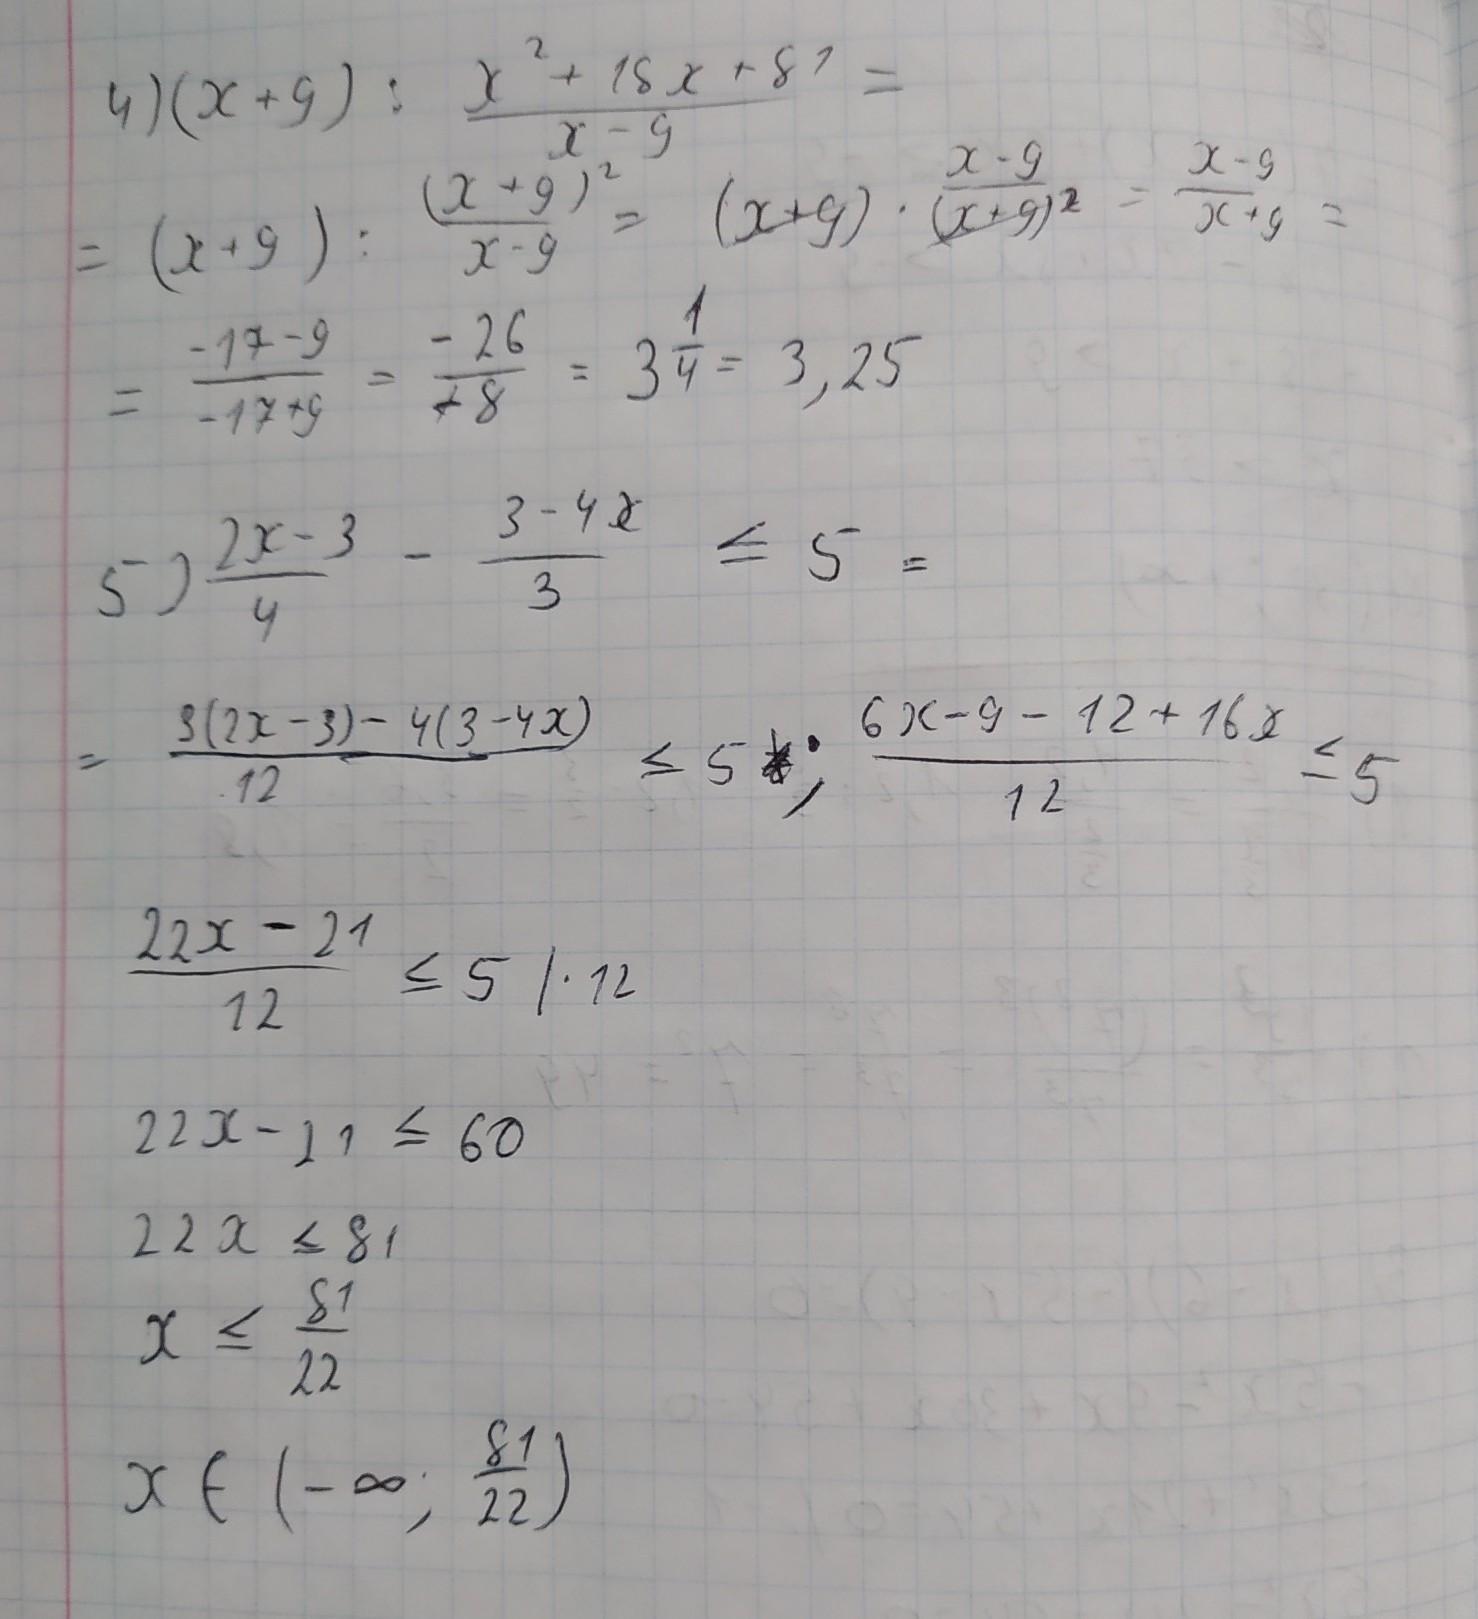 4) (x+9) : \frac{x^2+18x+81}{x-9} =
= (x+9) : \frac{(x+9)^2}{x-9} = (x+9) · \frac{x-9}{(x+9)^2} = \frac{x-9}{x+9} =
= \frac{-17-9}{-17+9} = \frac{-26}{-8} = 3\frac{1}{4} = 3,25
5) \frac{2x-3}{4} - \frac{3-4x}{3} ≤ 5 =
= \frac{3(2x-3)-4(3-4x)}{12} ≤ 5 ; \frac{6x-9-12+16x}{12} ≤ 5
\frac{22x-21}{12} ≤ 5 /·12
22x-21 ≤ 60
22x ≤ 81
x ≤ \frac{81}{22}
x ∈ (-∞; \frac{81}{22})